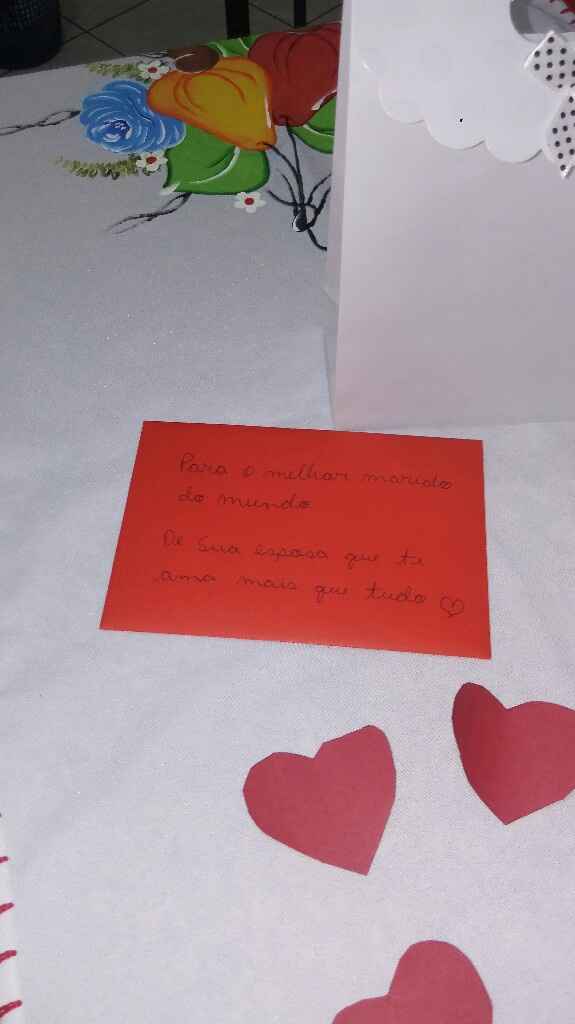 Para o melhor marido
do mundo
De sua esposa que te
ama mais que tudo ♡